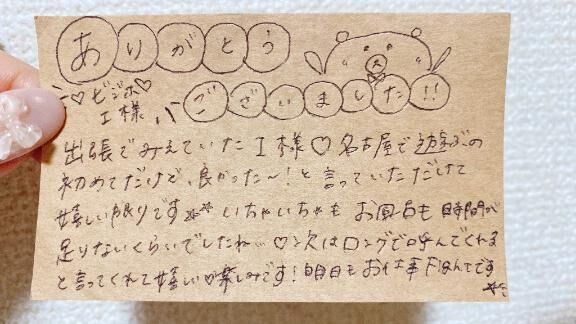 ありがとう
♡ビジホ♡
I様
ございました!!
出張でみえていた I様♡名古屋で遊ぶの
初めてだけど、良かった〜!と言っていただけて
嬉しい限りです いちゃいちゃも お風呂も 時間が
足りないくらいでしたね…♡次はロングで呼んでくれる
と言ってくれて嬉しい♡楽しみです!明日もお仕事